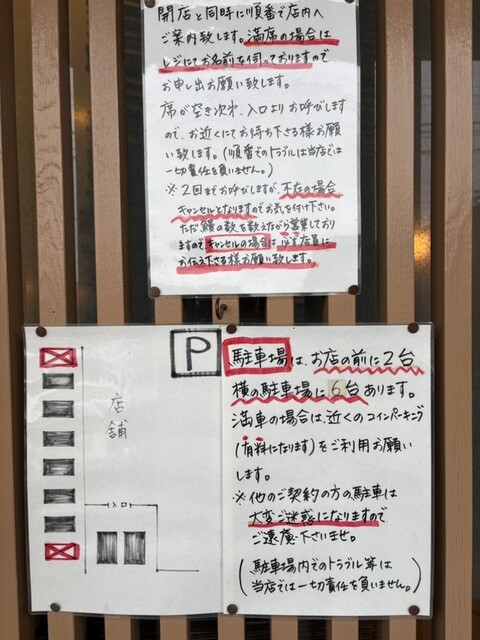 開店と同時に順番で店内へ
ご案内致します。満席の場合は
レジにてお名前を伺っておりますので
お申し出お願い致します。
席が空き次才、入口よりお呼びします
ので、お近くにてお待ち下さる様お願
い致します。(順番でのトラブルは当店では
一切責任を負いません。)
※2回までお呼びしますが、不在の場合
キャンセルとなりますのでお気を付け下さい。
ただ鰻の数を数えながら営業しており
ますのでキャンセルの場合は必ず店員に
お伝え下さる様お願い致します。
P
店舗
入口
駐車場は、お店の前に2台
横の駐車場に6台あります。
満車の場合は、近くのコインパーキング
(有料になります)をご利用お願い
します。
※他のご契約の方の駐車は
大変ご迷惑になりますので
ご遠慮下さいませ。
(駐車場内でのトラブル等は
当店では一切責任を負いません。)